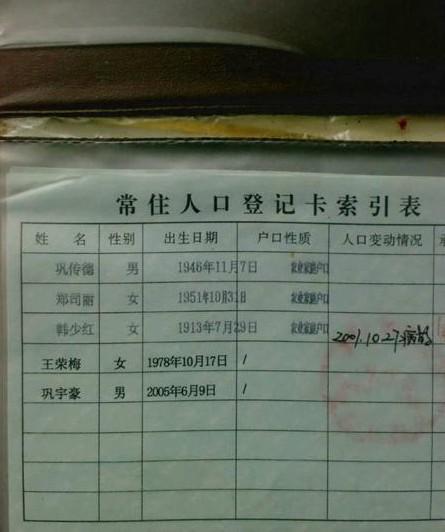 常住人口登记卡索引表
姓 名 性别 出生日期 户口性质 人口变动情况
巩传德 男 1946年11月7日 农业家庭户口
郑司丽 女 1951年10月31日 农业家庭户口
韩少红 女 1913年7月29日 农业家庭户口 2001.10.27病故
王荣梅 女 1978年10月17日 /
巩宇豪 男 2005年6月9日 /